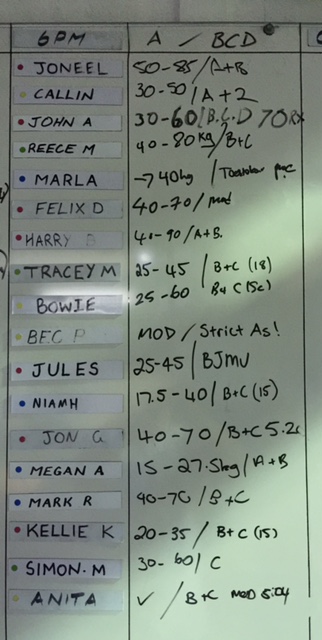 6PM A / BCD
JONEEL 50-85/A+B
CALLIN 30-50/A+2
JOHN A 30-60/B.C.D 70RX
REECE M 40-80kg/B+C
MARLA →40kg /
FELIX D 40-70/mod
HARRY 40-90/A+B.
TRACEY M 25-45 / B+C (18)
BOWIE 25-60 B+C (15c)
BEC P MOD / Strict As!
JULES 25-45 / BJMU
NIAMH 17.5-40/B+C (15)
JON G 40-70/B+C 5.2
MEGAN A 15-27.5kg/A+B
MARK R 40-70/B+C
KELLIE K 20-35 / B+C (15)
SIMON. M 30-60/ C
ANITA ✓ / B+C MOD